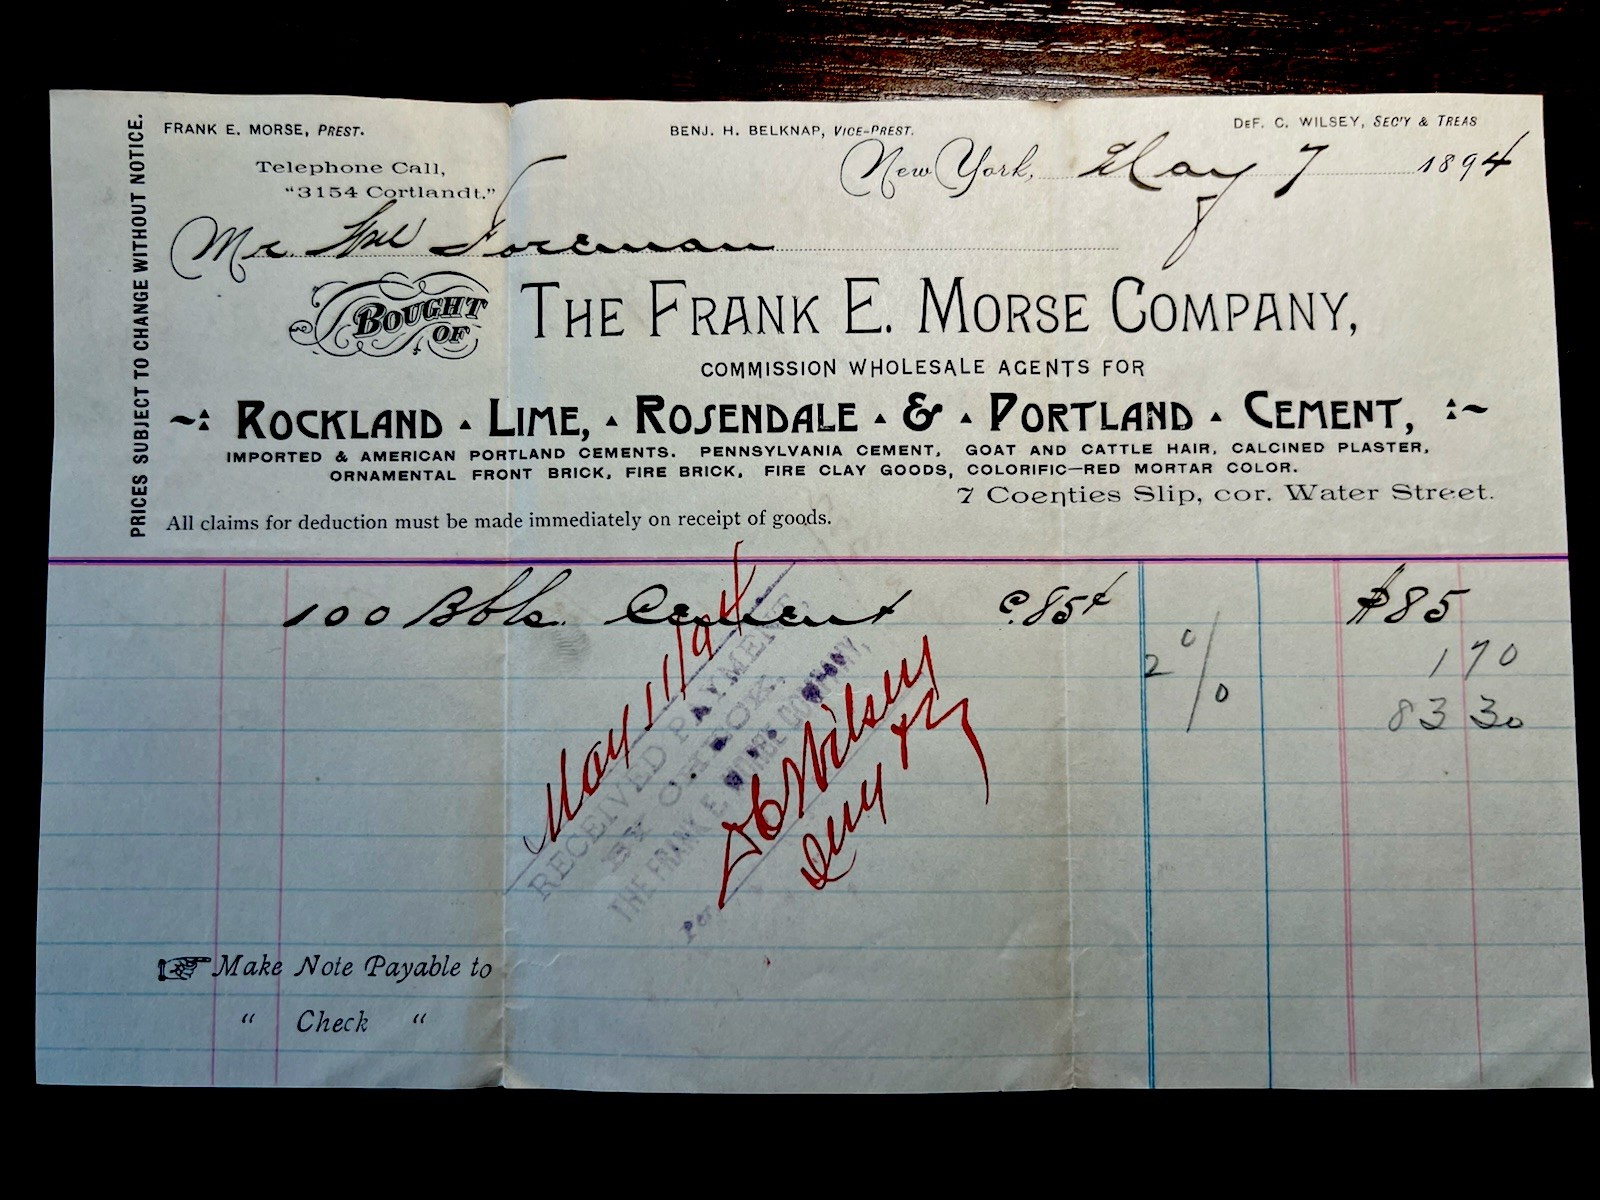 PRICES SUBJECT TO CHANGE WITHOUT NOTICE.
FRANK E. MORSE, PREST.
BENJ. H. BELKNAP, VICE-PREST.
DEF. C. WILSEY, SEC'Y & TREAS
Telephone Call,
"3154 Cortlandt."
New York, May 7 1894
Mr. Foreman
BOUGHT OF
THE FRANK E. MORSE COMPANY,
COMMISSION WHOLESALE AGENTS FOR
ROCKLAND LIME, ROSENDALE & PORTLAND CEMENT,
IMPORTED & AMERICAN PORTLAND CEMENTS. PENNSYLVANIA CEMENT, GOAT AND CATTLE HAIR, CALCINED PLASTER,
ORNAMENTAL FRONT BRICK, FIRE BRICK, FIRE CLAY GOODS, COLORIFIC—RED MORTAR COLOR.
7 Coenties Slip, cor. Water Street.
All claims for deduction must be made immediately on receipt of goods.
100 Bbls. Cement @ 85¢ $85
2 % 1 70
83 30
May 11/94
RECEIVED PAYMENT
BY CHECK,
THE FRANK E. MORSE COMPANY,
Per D C Wilsey
Make Note Payable to
" Check "